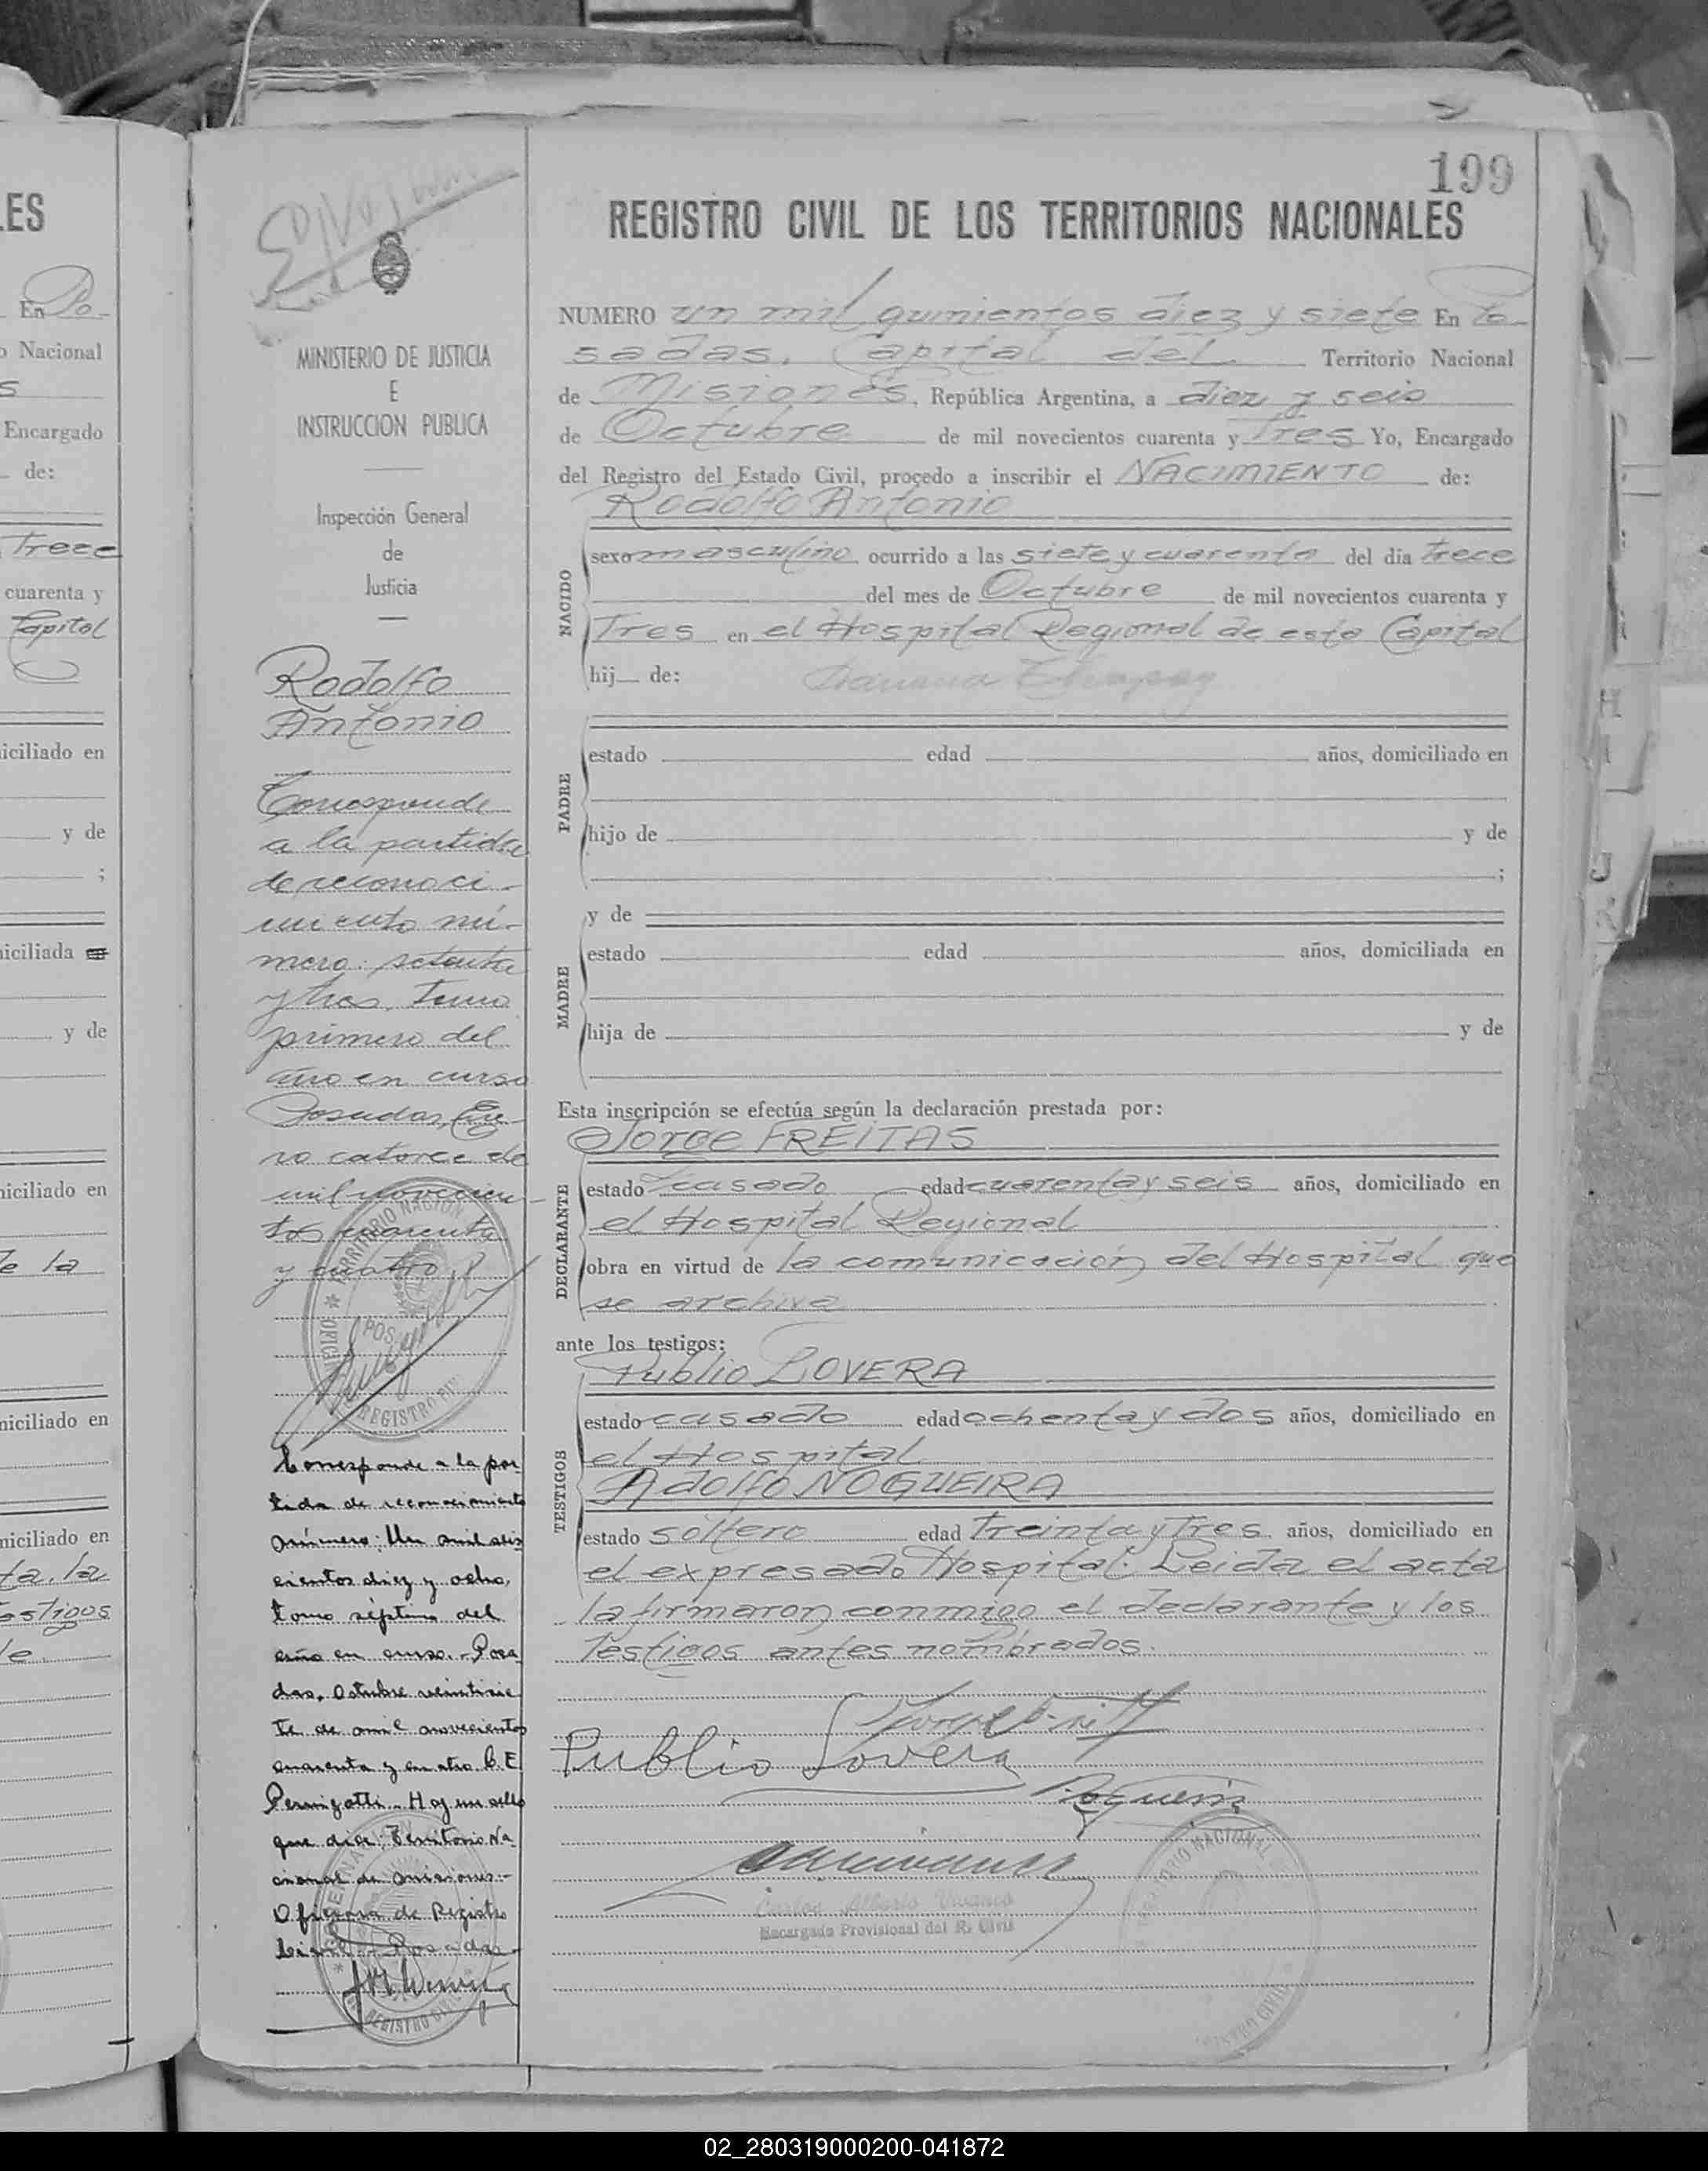 LES
En Po-
o Nacional
s
Encargado
de:
Trece
cuarenta y
Capital
iciliado en
y de
;
iciliada
y de
iciliado en
e la
niciliado en
niciliado en
ta. la
estigos
le.
199
REGISTRO CIVIL DE LOS TERRITORIOS NACIONALES
MINISTERIO DE JUSTICIA
E
INSTRUCCION PUBLICA
Inspección General
de
Justicia
Rodolfo
Antonio
Corresponde
a la partida
de reconoci-
miento nú-
mero: setenta
y tres, tomo
primero del
año en curso
Posadas, Ene-
ro catorce de
mil novecien-
tos cuarenta
y cuatro
Corresponde a la par
tida de reconocimiento
número: Un mil seis
cientos diez y ocho,
tomo séptimo del
año en curso.- Posa
das, Octubre veintisie
te de mil novecientos
cuarenta y cuatro C. E.
Pernigotti - Hay un sello
que dice: Territorio Na-
cional de Misiones.-
Oficina de Registro
Civil - Posadas -
NUMERO un mil quinientos diez y siete En Po-
sadas, Capital del Territorio Nacional
de Misiones, República Argentina, a diez y seis
de Octubre de mil novecientos cuarenta y Tres Yo, Encargado
del Registro del Estado Civil, procedo a inscribir el NACIMIENTO de:
Rodolfo Antonio
NACIDO
sexo masculino ocurrido a las siete y cuarenta del día trece
del mes de Octubre de mil novecientos cuarenta y
Tres en el Hospital Regional de esta Capital
hij de:
PADRE
estado edad años, domiciliado en
hijo de y de
;
y de
MADRE
estado edad años, domiciliada en
hija de y de
Esta inscripción se efectúa según la declaración prestada por:
Jorge FREITAS
DECLARANTE
estado casado edad cuarenta y seis años, domiciliado en
el Hospital Regional
obra en virtud de la comunicación del Hospital que
se archiva
ante los testigos:
Publio LOVERA
TESTIGOS
estado casado edad ochenta y dos años, domiciliado en
el Hospital
Adolfo NOGUEIRA
estado soltero edad Treinta y Tres años, domiciliado en
el expresado Hospital. Leida el acta
la firmaron conmigo el declarante y los
Testigos antes nombrados.
Publio Lovera
Carlos Alberto Vivanco
Encargado Provisional del R. Civil
02_280319000200-041872